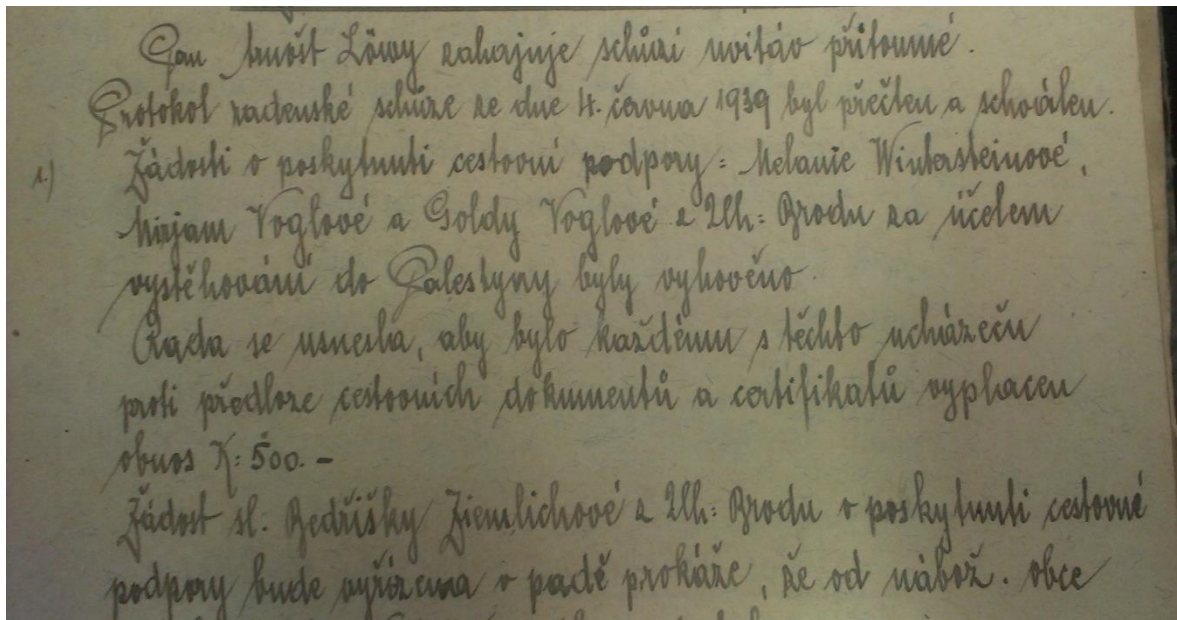 Pan Arnošt Löwy zahajuje schůzi uvitáv přítomné.
Protokol zadenské schůze ze dne 4. června 1939 byl přečten a schválen.
1.) Žádosti o poskytnuti cestovní podpory: Melanie Wintersteinové,
Mirjam Voglové a Goldy Voglové z Uh: Brodu za účelem
vystěhování do Palestyny byly vyhověno.
Rada se usnesla, aby bylo každému s těchto ucházeču
proti předloze cestovních dokumentů a certifikatů vyplacen
obnos K: 500.-
Žádost sl. Bedřišky Ziemlichové z Uh: Brodu o poskytnuti cestovné
podpory bude vyřízena v padě prokáže, že od nábož. obce